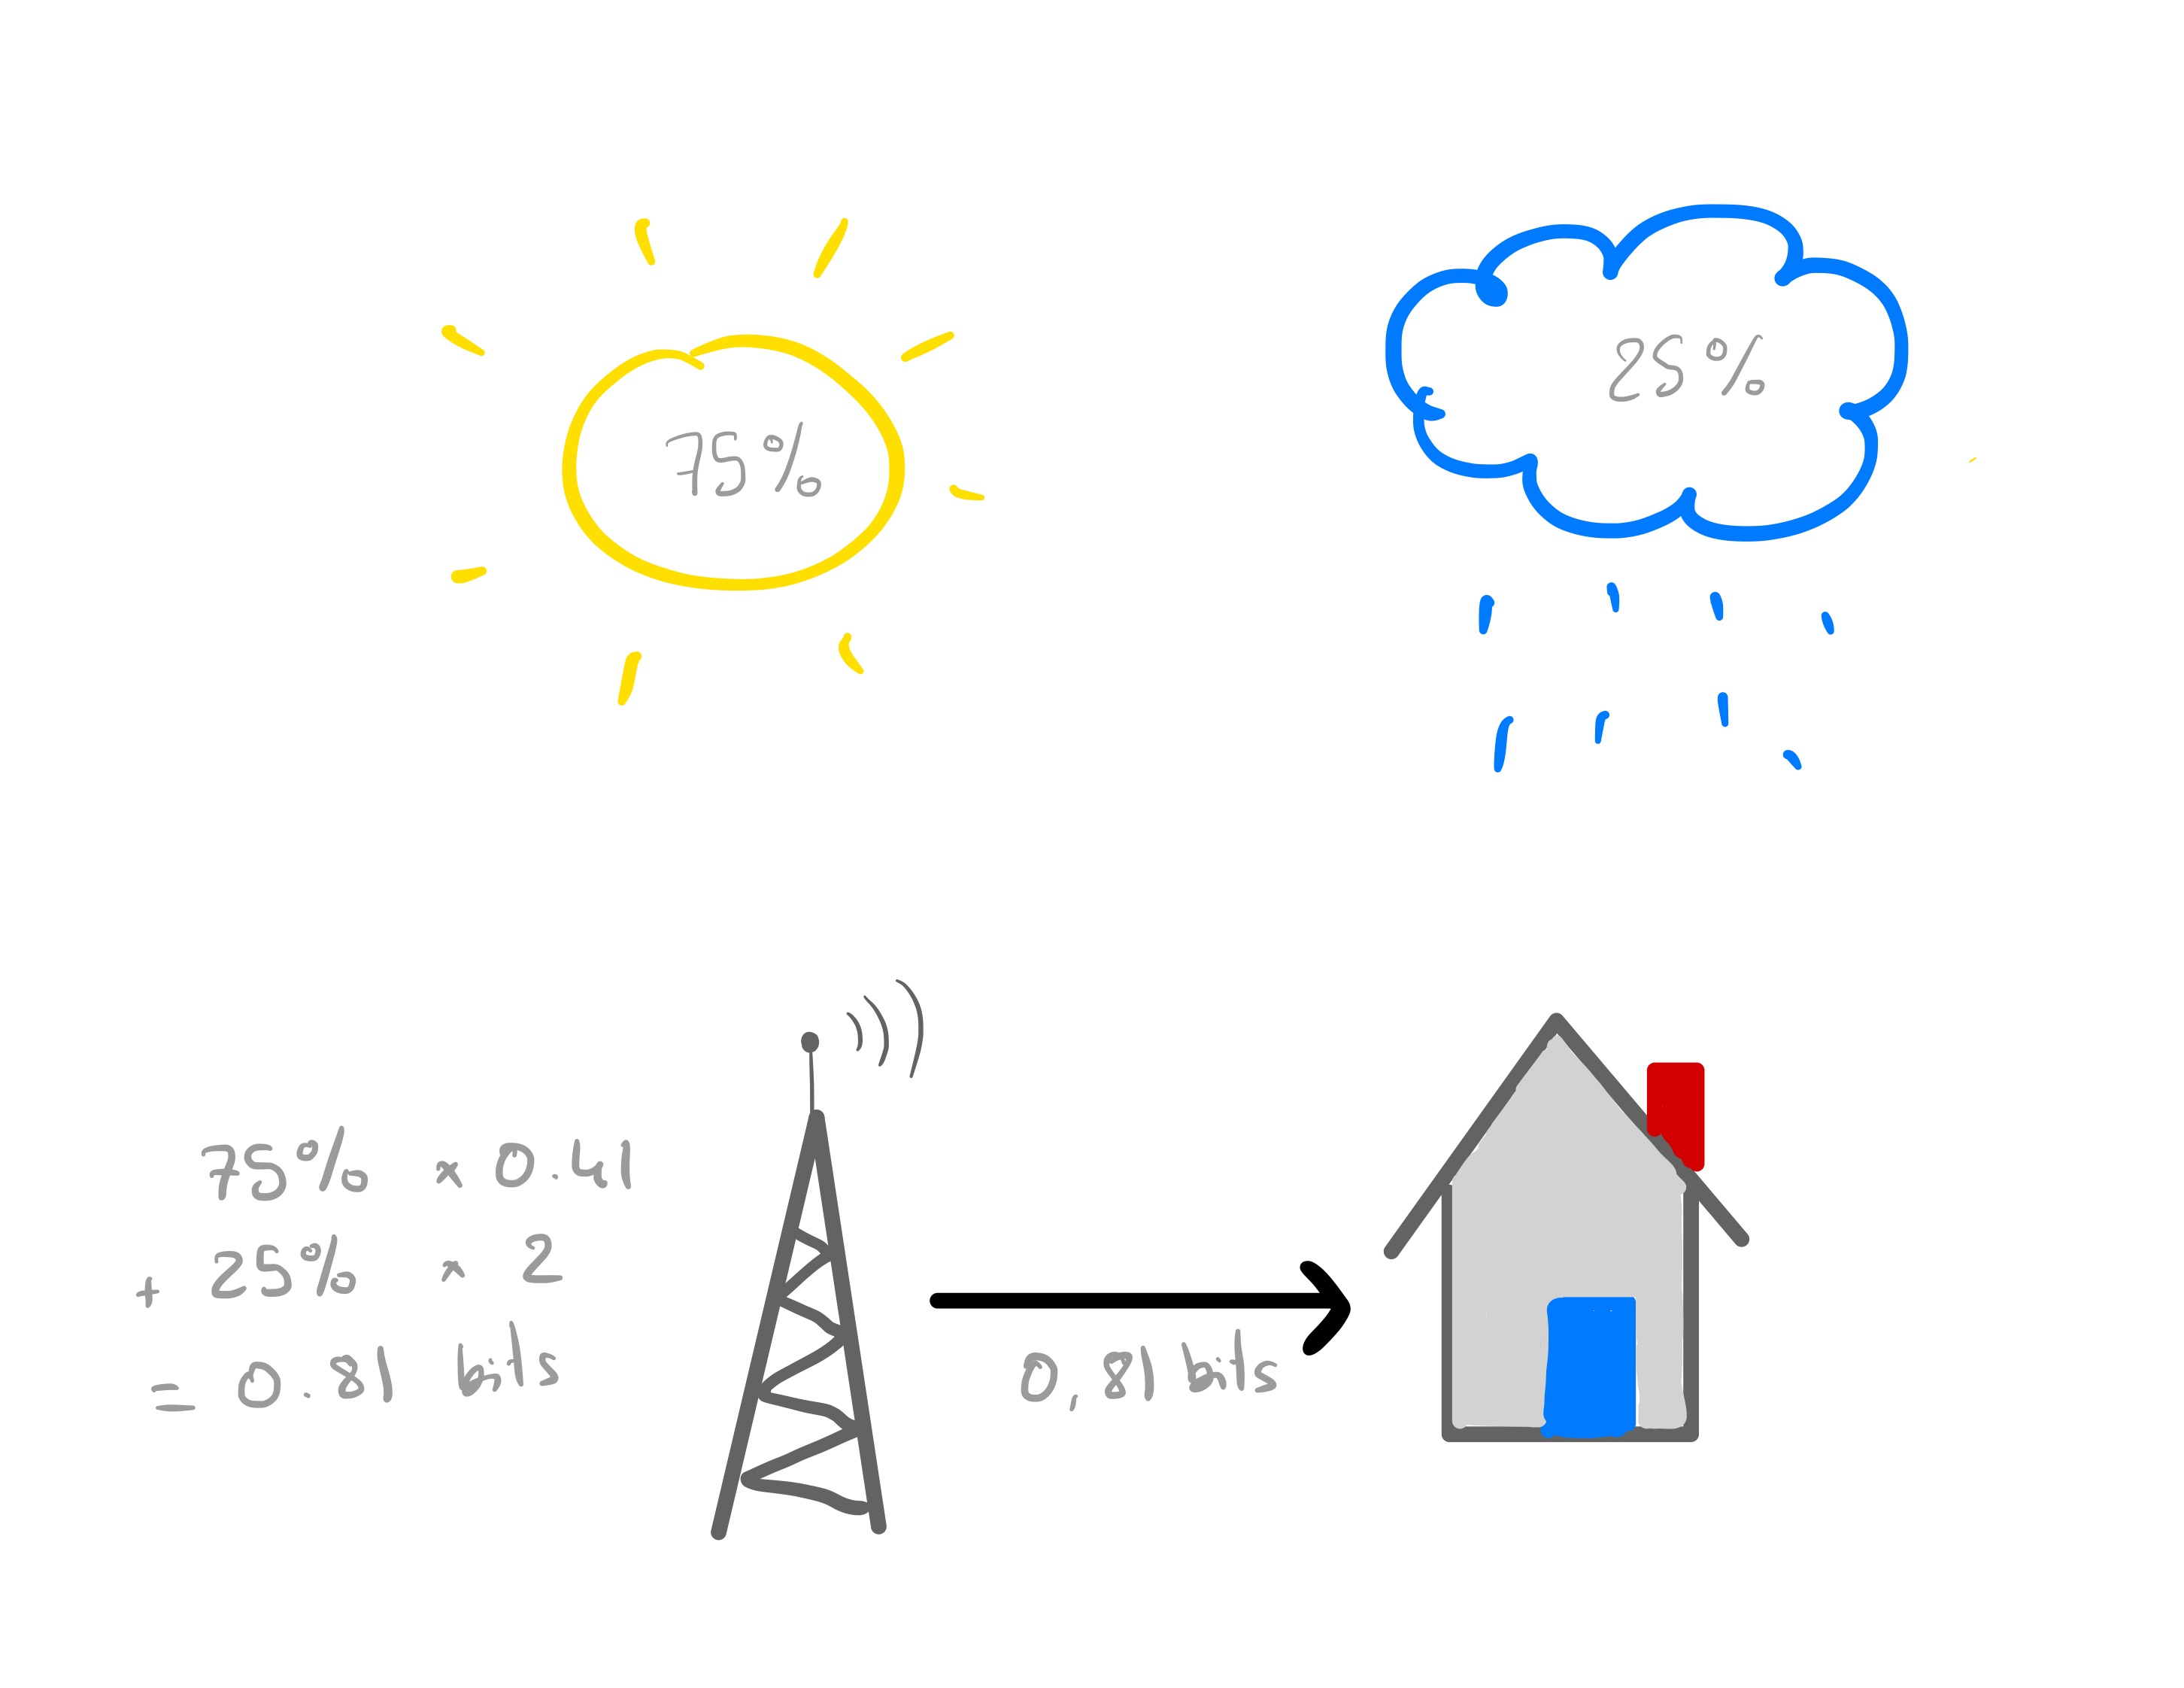 75%
25%
75% x 0.41
+ 25% x 2
= 0.81 bits
0,81 bits